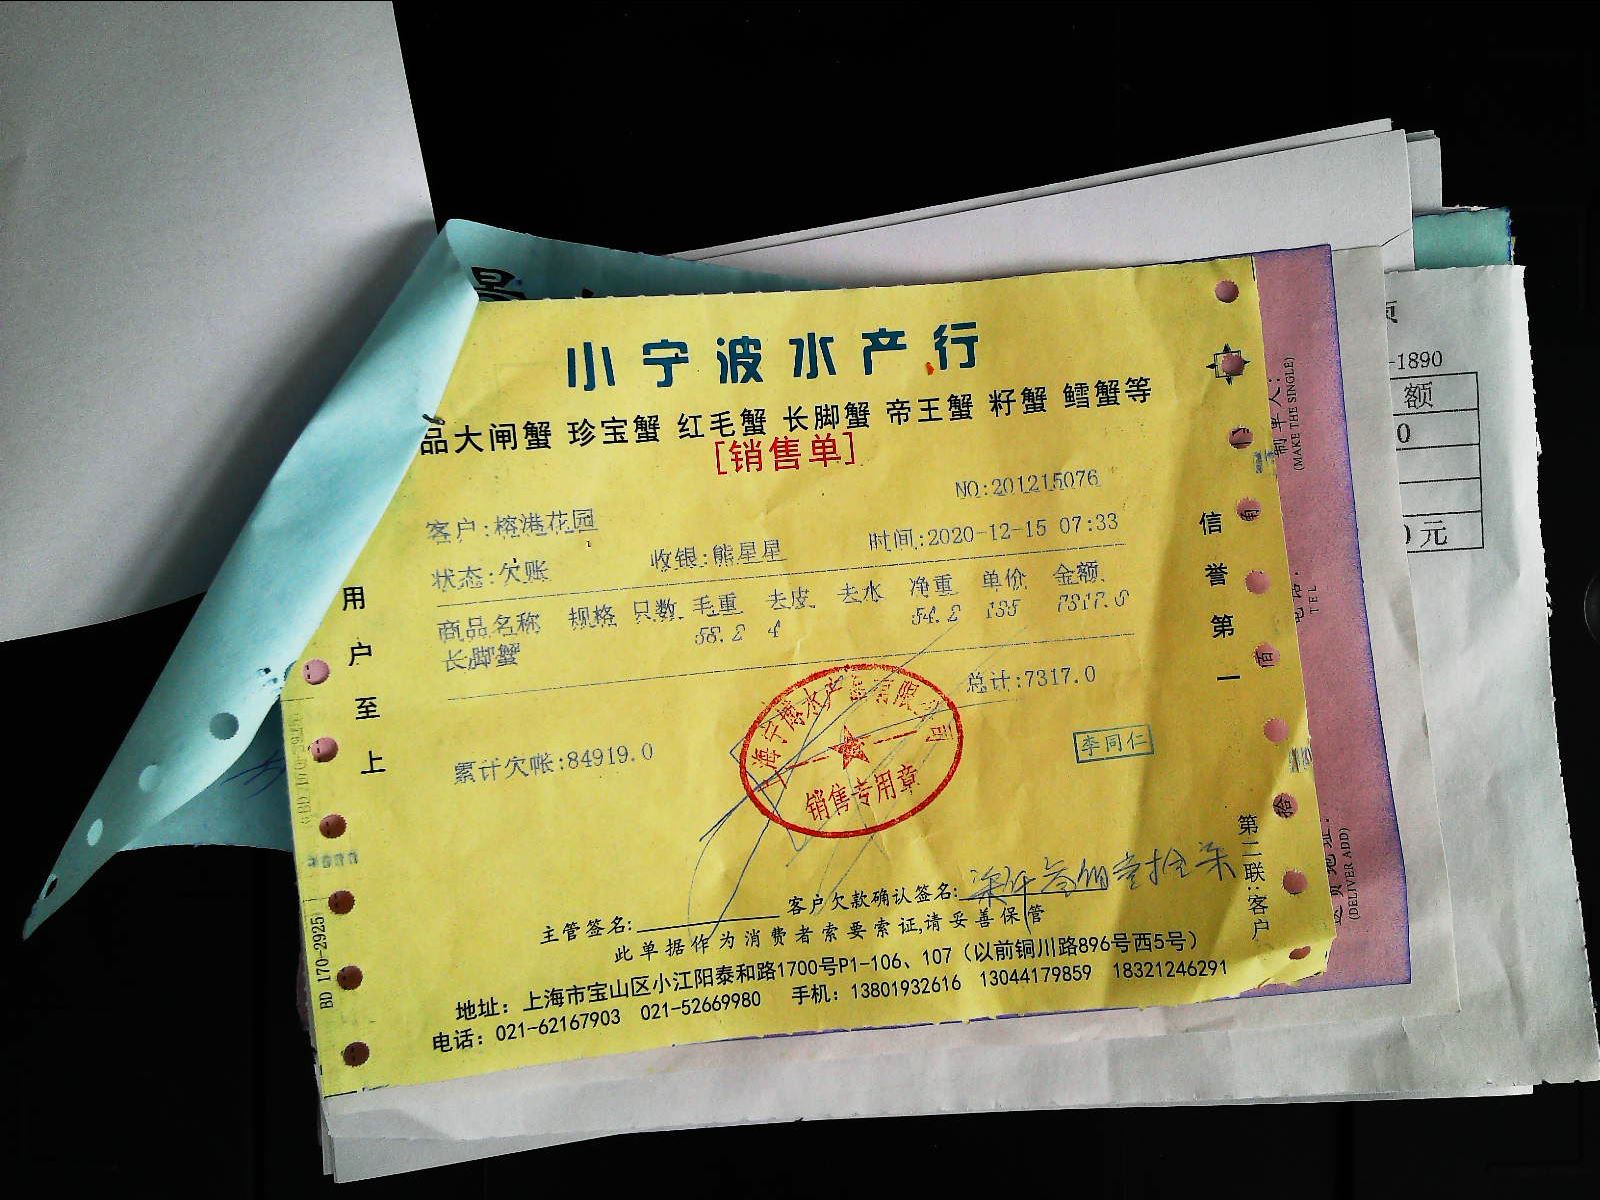 小宁波水产行
品大闸蟹 珍宝蟹 红毛蟹 长脚蟹 帝王蟹 籽蟹 鳕蟹等
[销售单]
NO:201215076
客户:榕港花园
时间:2020-12-15 07:33
状态:欠账
收银:熊星星
商品名称 规格 只数 毛重 去皮 去水 净重 单价 金额
长脚蟹 58.2 4 54.2 135 7317.0
总计:7317.0
累计欠帐:84919.0
李同仁
销售专用章
用户至上
信誉第一
第二联:客户
主管签名: 客户欠款确认签名:
此单据作为消费者索要索证,请妥善保管
地址：上海市宝山区小江阳泰和路1700号P1-106、107（以前铜川路896号西5号）
电话：021-62167903 021-52669980 手机：13801932616 13044179859 18321246291
BD 170-2925
(MAKE THE SINGLE)
TEL
(DELIVER ADD)
-1890
额
0
元